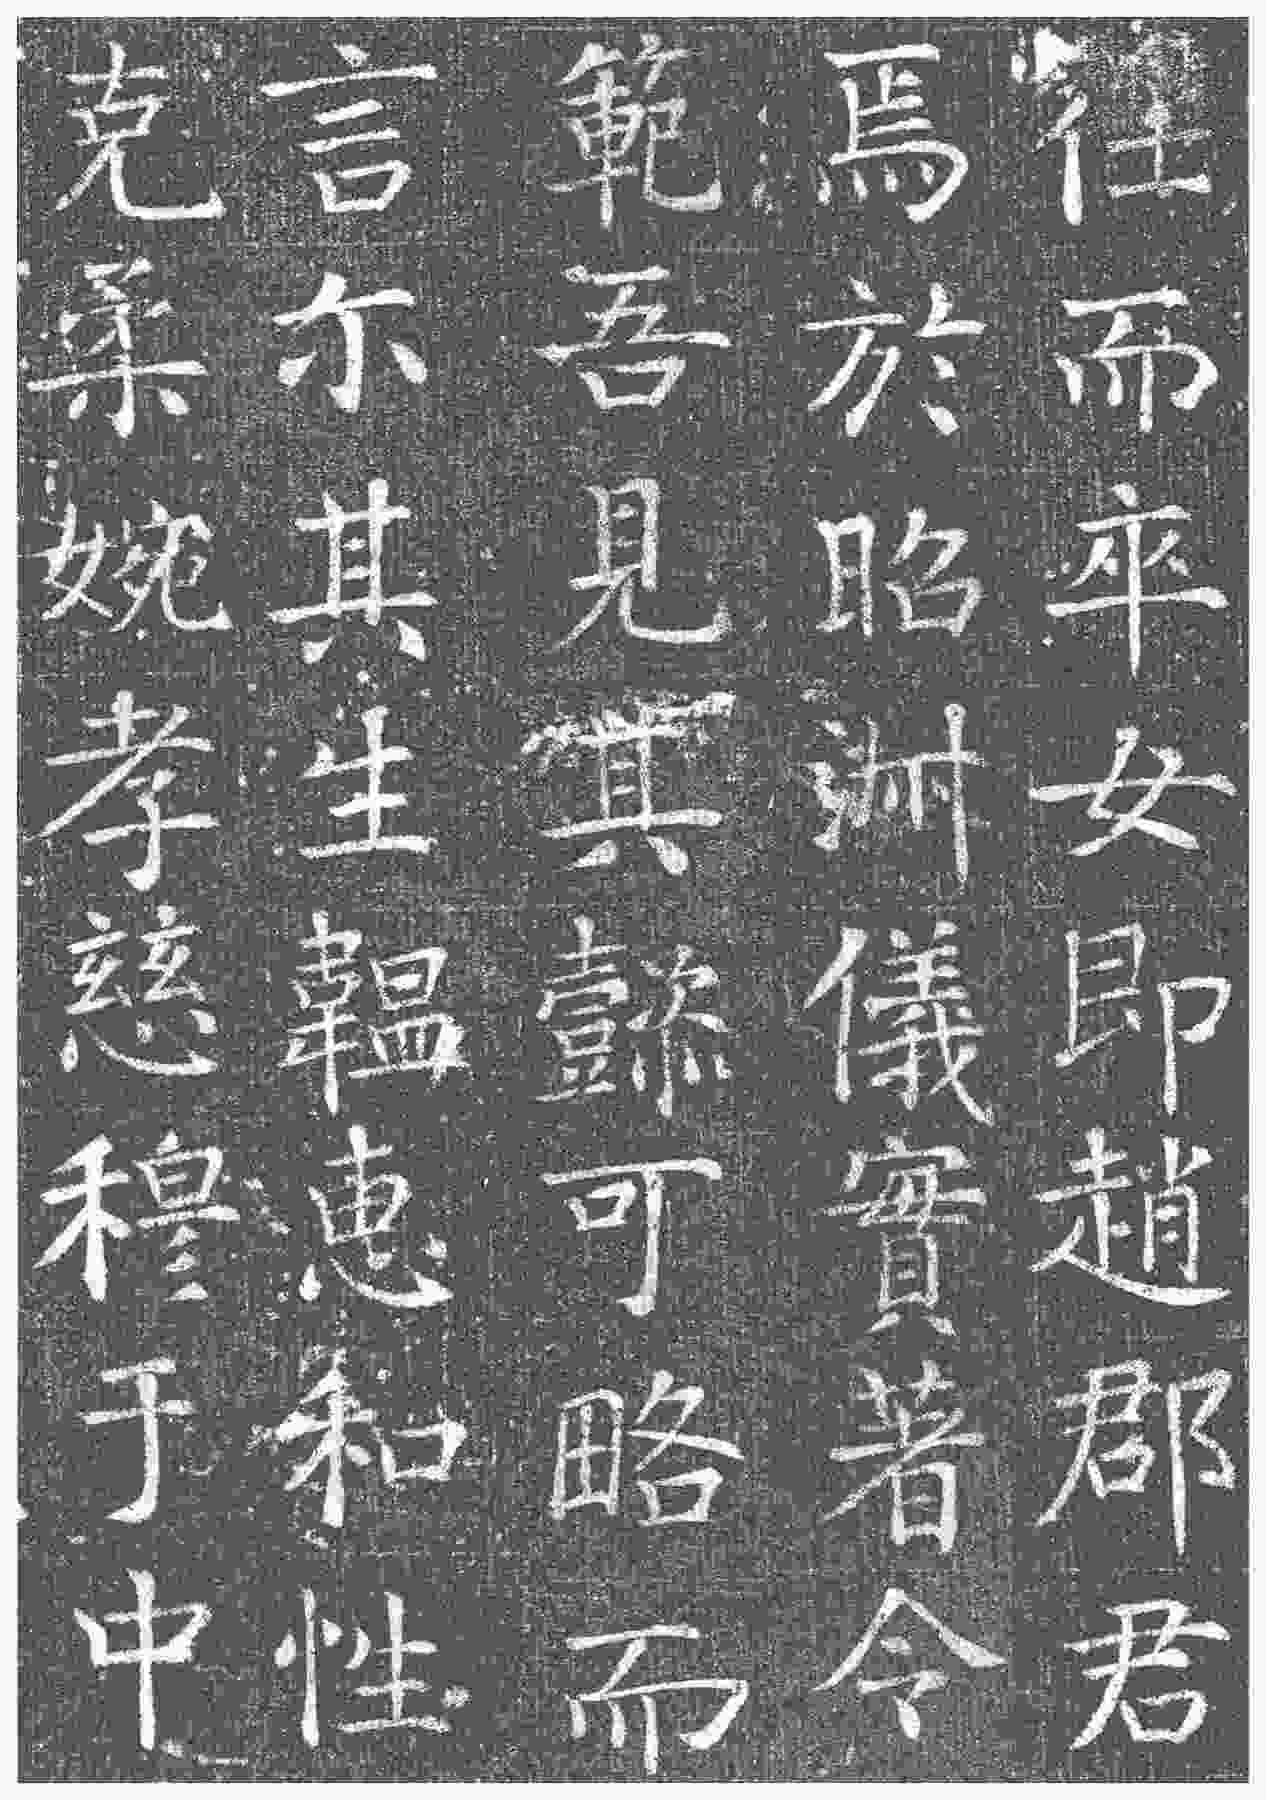 往而卒女即趙郡君
焉於昭淑儀實著令
範吾見其懿可略而
言尓其生韞恵和性
克柔婉孝慈穆于中